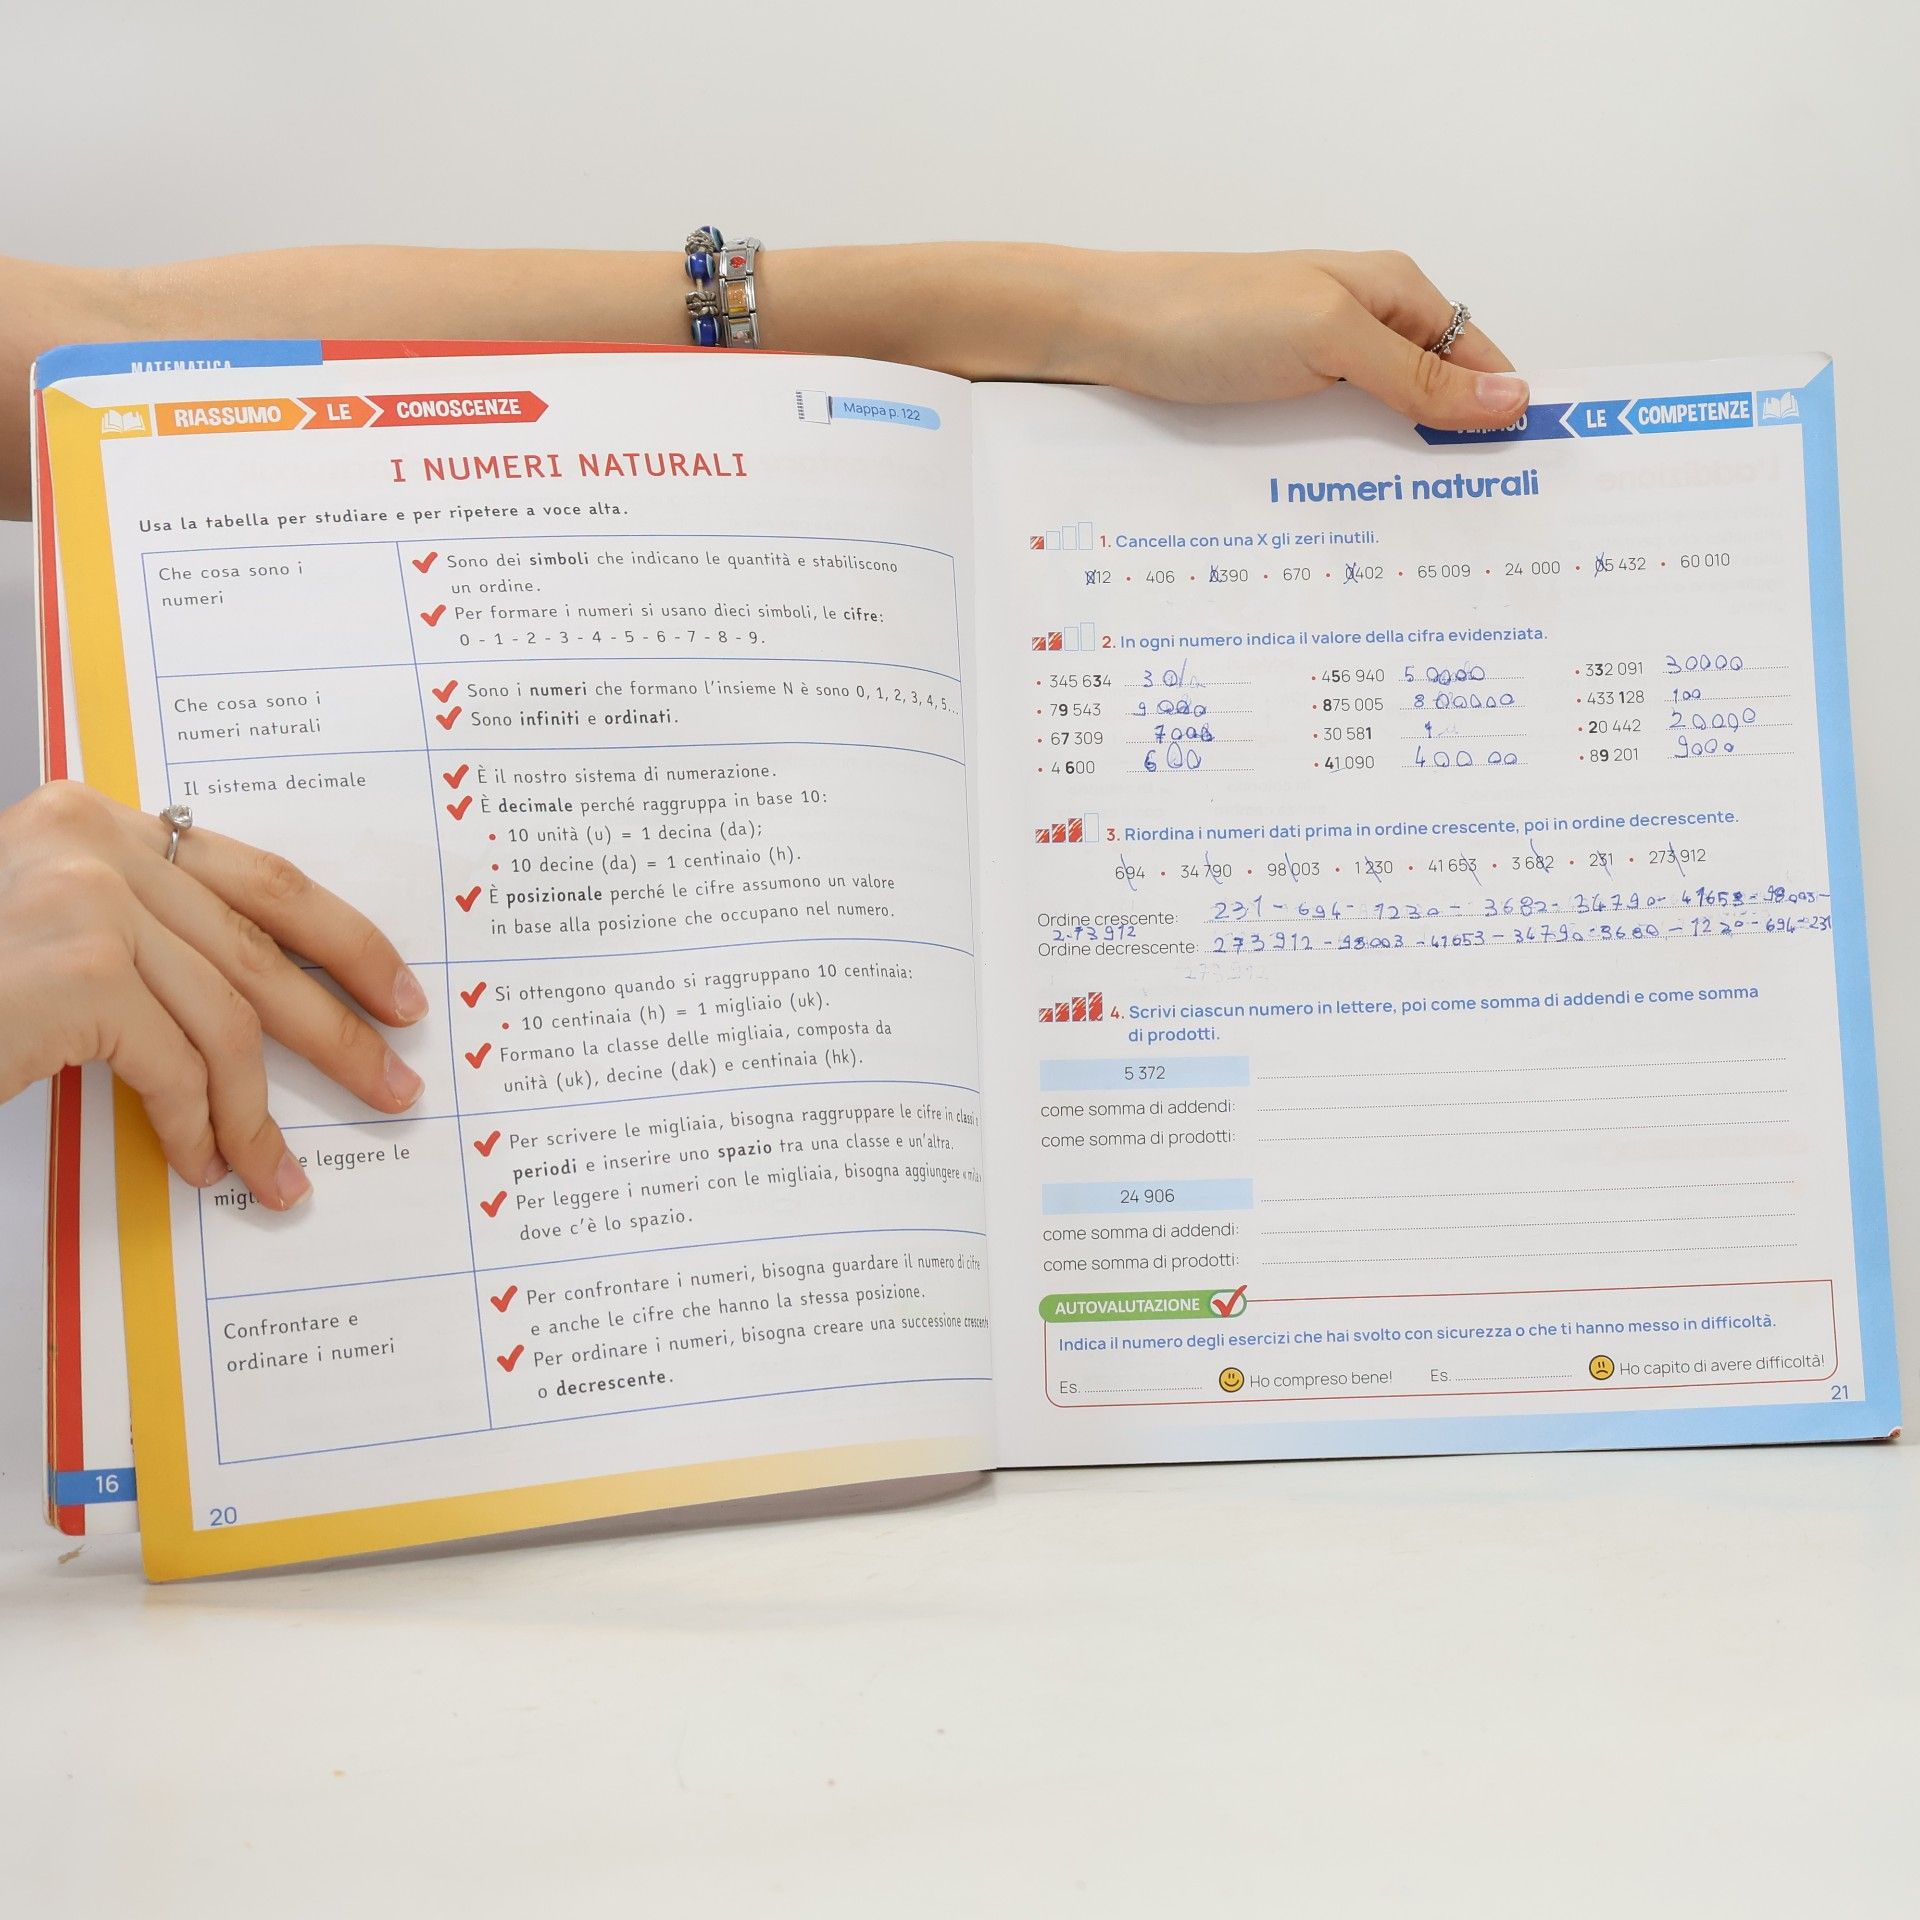 MATEMATICA
RIASSUMO LE CONOSCENZE
Mappa p. 122
I NUMERI NATURALI
Usa la tabella per studiare e per ripetere a voce alta.
Che cosa sono i
numeri
Sono dei simboli che indicano le quantità e stabiliscono
un ordine.
Per formare i numeri si usano dieci simboli, le cifre:
0 - 1 - 2 - 3 - 4 - 5 - 6 - 7 - 8 - 9.
Che cosa sono i
numeri naturali
Sono i numeri che formano l'insieme N è sono 0, 1, 2, 3, 4, 5...
Sono infiniti e ordinati.
Il sistema decimale
È il nostro sistema di numerazione.
È decimale perché raggruppa in base 10:
• 10 unità (u) = 1 decina (da);
• 10 decine (da) = 1 centinaio (h).
È posizionale perché le cifre assumono un valore
in base alla posizione che occupano nel numero.
Si ottengono quando si raggruppano 10 centinaia:
• 10 centinaia (h) = 1 migliaio (uk).
Formano la classe delle migliaia, composta da
unità (uk), decine (dak) e centinaia (hk).
e leggere le
Per scrivere le migliaia, bisogna raggruppare le cifre in classi
periodi e inserire uno spazio tra una classe e un'altra.
Per leggere i numeri con le migliaia, bisogna aggiungere «mila
dove c'è lo spazio.
Confrontare e
ordinare i numeri
Per confrontare i numeri, bisogna guardare il numero di cifre
e anche le cifre che hanno la stessa posizione.
Per ordinare i numeri, bisogna creare una successione crescente
o decrescente.
16
20
LE COMPETENZE
I numeri naturali
1. Cancella con una X gli zeri inutili.
012 • 406 • 0390 • 670 • 0402 • 65 009 • 24 000 • 05 432 • 60 010
2. In ogni numero indica il valore della cifra evidenziata.
• 345 634 30 • 456 940 50000 • 332 091 30000
• 79 543 9000 • 875 005 800000 • 433 128 100
• 67 309 7000 • 30 581 1 • 20 442 20000
• 4 600 600 • 41 090 40000 • 89 201 9000
3. Riordina i numeri dati prima in ordine crescente, poi in ordine decrescente.
694 • 34 790 • 98 003 • 1 230 • 41 653 • 3 682 • 231 • 273 912
Ordine crescente: 231 - 694 - 1230 - 3682 - 34790 - 41653 - 98003 -
273912
Ordine decrescente: 273912 - 98003 - 41653 - 34790 - 3680 - 1220 - 694 - 231
4. Scrivi ciascun numero in lettere, poi come somma di addendi e come somma
di prodotti.
5 372
come somma di addendi:
come somma di prodotti:
24 906
come somma di addendi:
come somma di prodotti:
AUTOVALUTAZIONE
Indica il numero degli esercizi che hai svolto con sicurezza o che ti hanno messo in difficoltà.
Es. Ho compreso bene! Es. Ho capito di avere difficoltà!
21